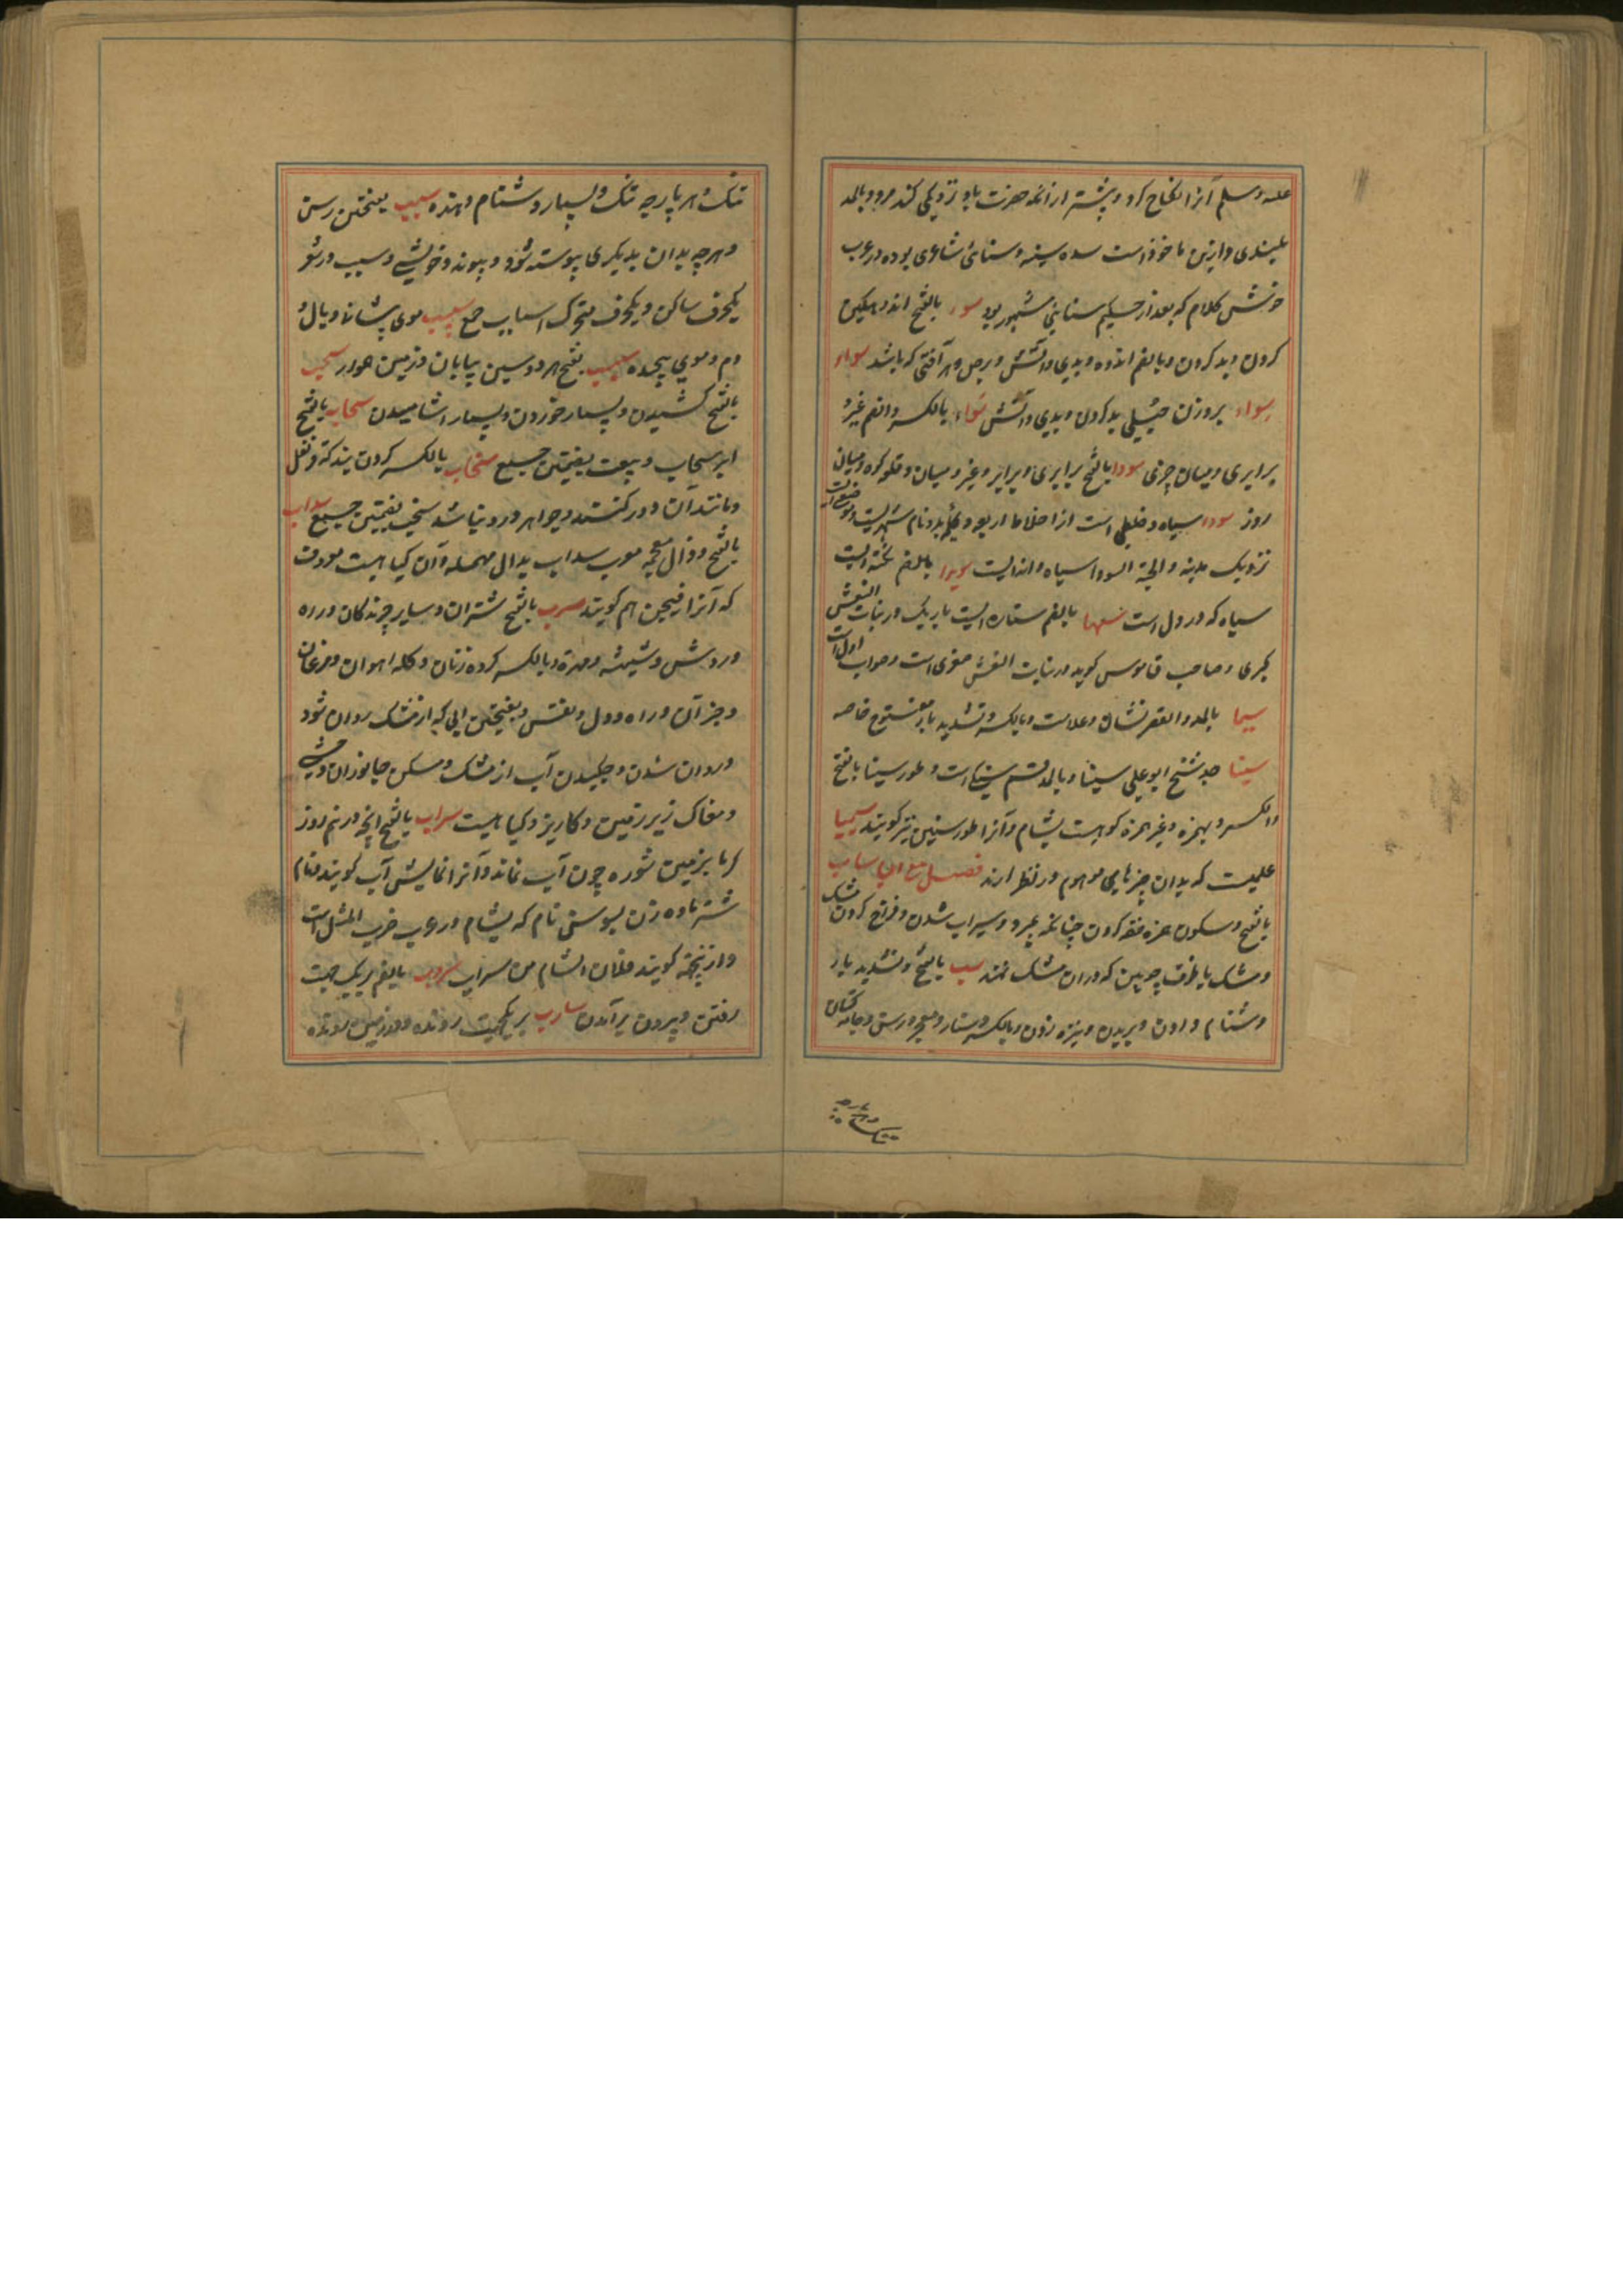 علیه وسلم آنرا نکاح کرد و پیشتر از آنکه حضرت باو نزدیکی کند مرد و بالمد
بلندی و ازین ماخوذ است سده سینه و سنائی شاعری بوده در عرب
خوش کلام که بعد از حکیم سنایی مشهور بود سوء بالفتح اندوهگین
کردن و بد کردن و بالضم اندوه و بدی و آتش و برص و هر آفتی که باشد سواء
سواء بروزن بد کردن و بدی و آتش سواء بالکسر والضم غیر و
برابری و میان چیزی سوا بالفتح برابری و برابر و غیر و میان و قله کوه و میان
روز سودا سیاه و خلطی است از اخلاط اربعه و نام شهریست و موضعی است
نزدیک مدینه و الحبة السودا سیاه دانه است سویدا بالضم نقطه ایست
سیاه که در دل است سها بالضم ستاره ایست باریک در بنات النعش
کبری و صاحب قاموس گوید در بنات النعش صغری است و صواب اول است
سیما بالمد والقصر نشان و علامت و بالکسر و تشدید یاء مفتوح خاصه
سینا جد شیخ ابو علی سینا و بالمد قسم است و طور سینا بالفتح
والکسر و بهمزه و غیر همزه کوهیست بشام و آنرا طور سینین نیز گویند سیمیا
علمیست که بدان چیزهایی موهوم در نظر آرند فصل مع الباء ساب
بالفتح و سکون همزه خفه کردن چنانکه بمیرد و سیراب شدن و فراخ کردن مشک
و مشک یا ظرف چوبین که در آن مشک نهند سب بالفتح و تشدید باء
دشنام دادن و بریدن و نیزه زدن و بالکسر دستار و معجر و رسن و جامه کتان
تنک و هر پارچه تنک و بسیار دشنام دهنده سبب بفتحتین رسن
و هر چه بدان بدیگری پیوسته شود و پیوند و خویشی و سبب در شعر
یکحرف ساکن و یکحرف متحرک اسباب جمع سبیب موی پیشانی و یال و
دم و موی پیچیده سبسب بفتح هر دو سین بیابان و زمین هموار سحب
بالفتح کشیدن و بسیار خوردن و بسیار آشامیدن سحاب بالفتح
ابر سحایب و سحب بضمتین جمع سخاب بالکسر گردن بند که قرنفل
و مانند آن در کشند و جواهر در و نباشد سخب بضمتین جمع سذاب
بالفتح و ذال معجمه معرب سداب بدال مهمله و آن گیاهیست معروف
که آنرا فیجن هم گویند سرب بالفتح شتران و سایر چرندگان و راه
و روش و سینه و بالکسر گروه زنان و گله آهوان و مرغان
و جز آن و راه و دل و نفس و بفتحتین آبی که از مشک روان شود
و روان شدن و چکیدن آب از مشک و مسکن جانوران وحشی
و مغاک زیر زمین و کاریز و گیاهیست سراب بالفتح آنچه در نیم روز
گرما بزمین شوره چون آب نماند و آنرا نمایش آب گویند و نام
شتر ماده زن بسوس نام که بشام در عرب ضرب المثل است
و ازینجهة گویند فلان اشام من سراب سروب بالضم بریک جهت
رفتن و بیرون برآمدن سارب بریکجهت رونده و در زمین رونده